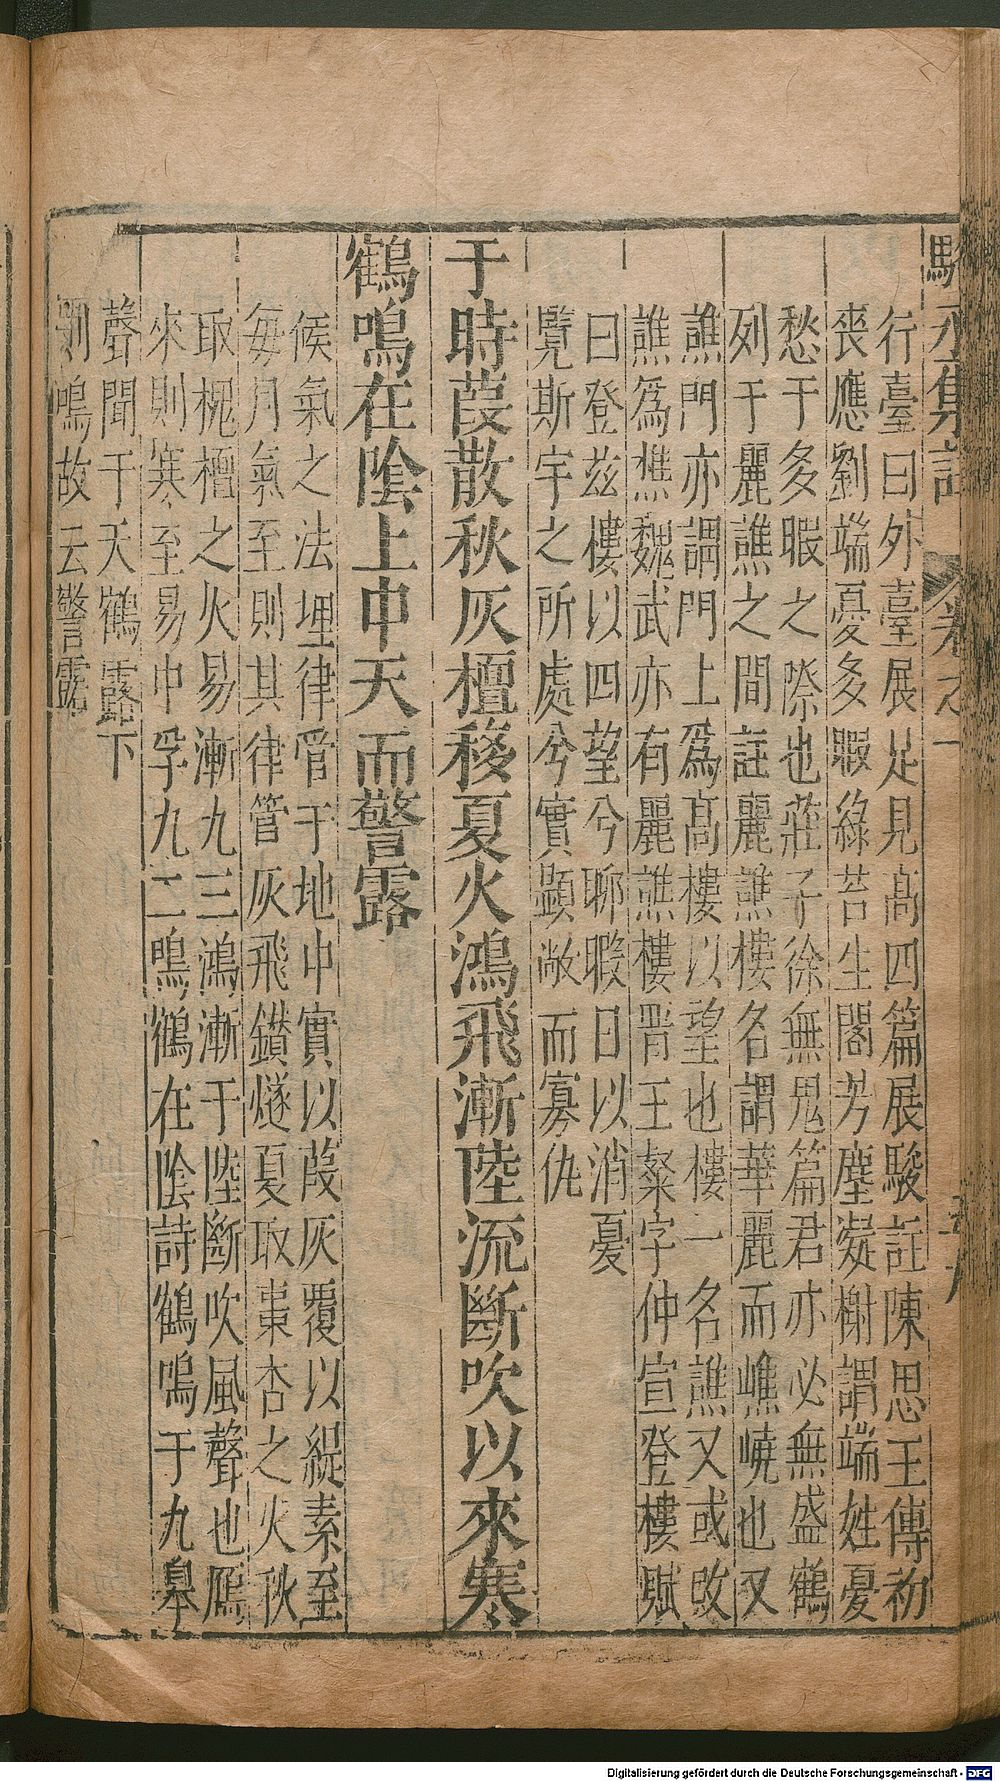 駱丞集註 卷之一
行臺曰外臺展足見高四篇展駿註陳思王傳初
喪應劉端憂多暇綠苔生閣芳塵凝榭謂端姓憂
愁于多暇之際也莊子徐無鬼篇君亦必無盛鶴
列于麗譙之間註麗譙樓名謂華麗而嶕嶢也又
譙門亦謂門上爲高樓以望也樓一名譙又或改
譙爲樵魏武亦有麗譙樓晋王粲字仲宣登樓賦
曰登兹樓以四望兮聊暇日以消憂
覧斯宇之所處兮實顕敞而寡仇
于時葭散秋灰檀移夏火鴻飛漸陸流斷吹以來寒
鶴鳴在陰上中天而警露
候氣之法埋律管于地中實以葭灰覆以緹素至
每月氣至則其律管灰飛鑚燧夏取棗杏之火秋
取槐檀之火易漸九三鴻漸于陸斷吹風聲也鴈
來則寒至易中孚九二鳴鶴在陰詩鶴鳴于九臯
聲聞于天鶴露下
則鳴故云警露
Digitalisierung gefördert durch die Deutsche Forschungsgemeinschaft - DFG